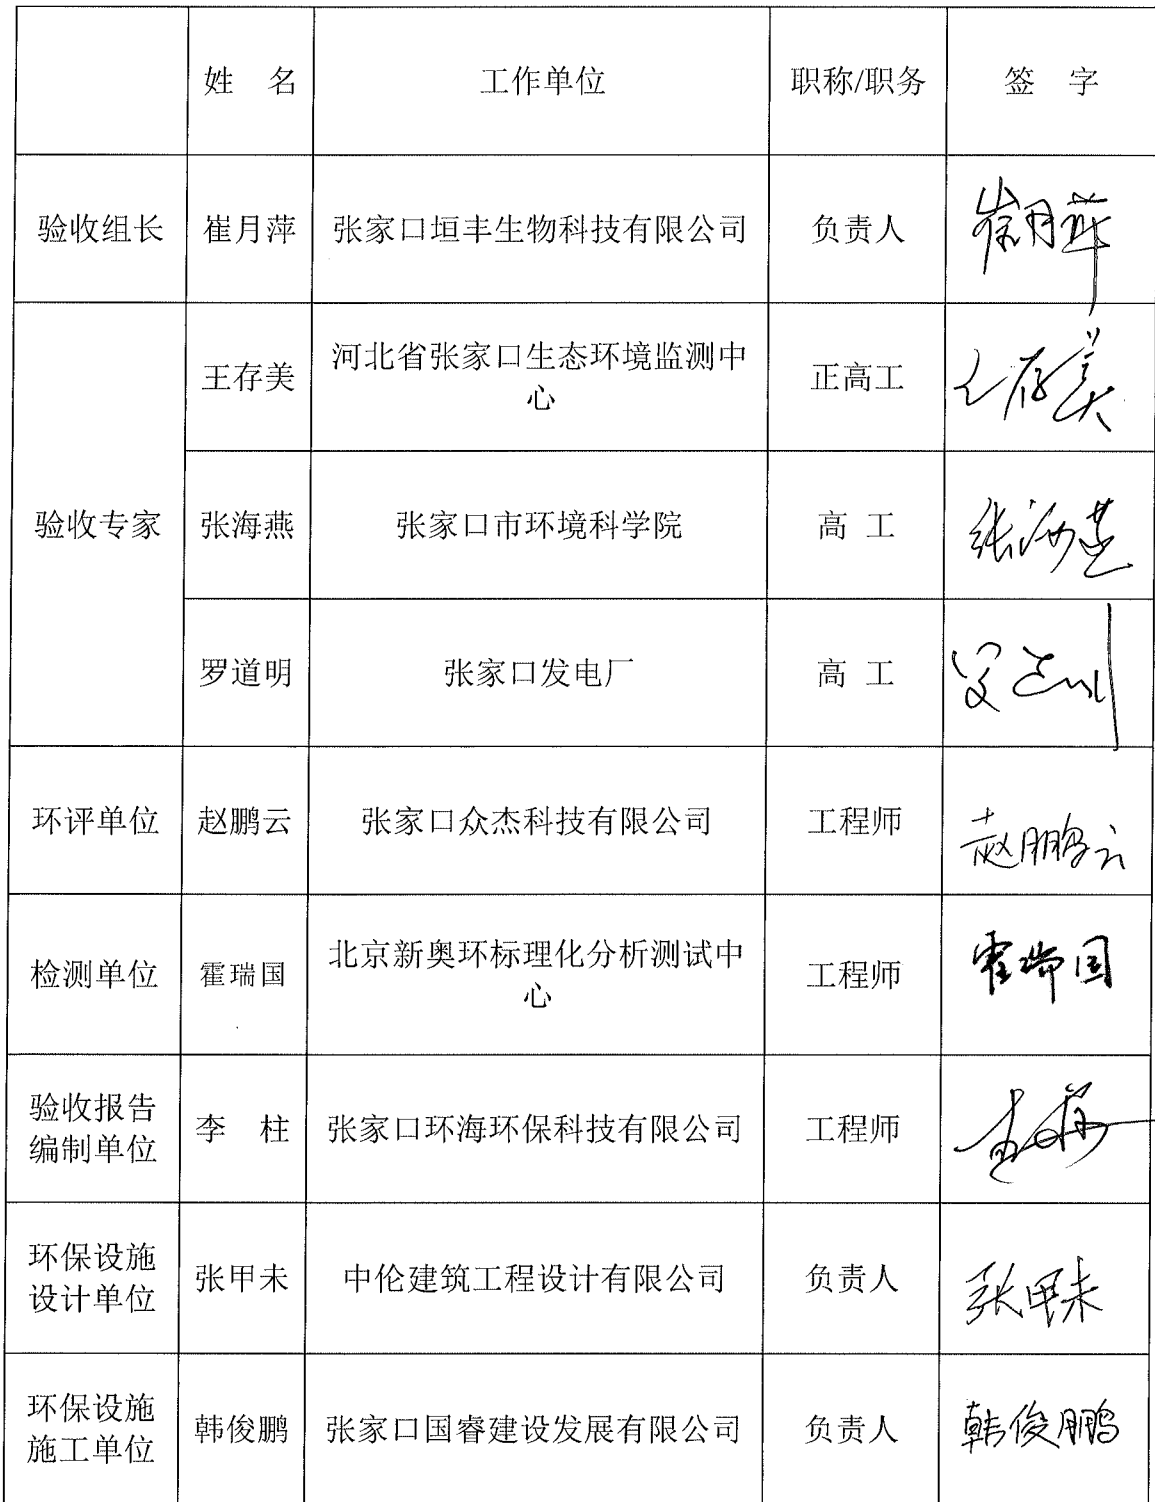 姓 名 工作单位 职称/职务 签 字
验收组长 崔月萍 张家口垣丰生物科技有限公司 负责人 崔月萍
王存美 河北省张家口生态环境监测中 正高工 王存美
心
验收专家 张海燕 张家口市环境科学院 高 工 张海燕
罗道明 张家口发电厂 高 工
环评单位 赵鹏云 张家口众杰科技有限公司 工程师 赵鹏云
检测单位 霍瑞国 北京新奥环标理化分析测试中 工程师 霍瑞国
心
验收报告
编制单位 李 柱 张家口环海环保科技有限公司 工程师
环保设施
设计单位 张甲未 中伦建筑工程设计有限公司 负责人 张甲未
环保设施
施工单位 韩俊鹏 张家口国睿建设发展有限公司 负责人 韩俊鹏